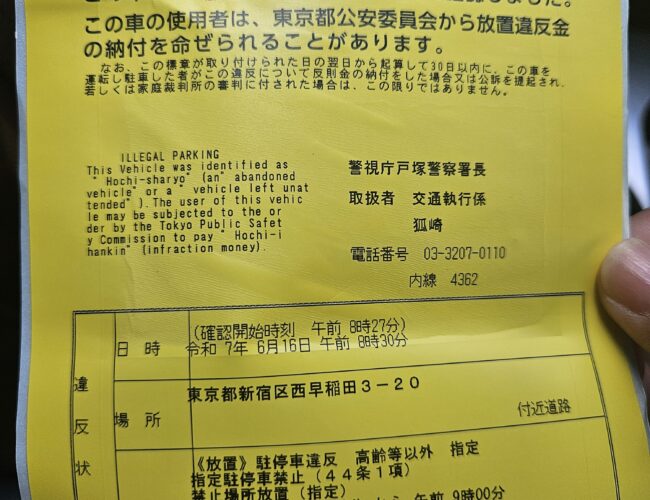 この車の使用者は、東京都公安委員会から放置違反金
の納付を命ぜられることがあります。
なお、この標章が取り付けられた日の翌日から起算して30日以内に、この車を
運転し駐車した者がこの違反について反則金の納付をした場合又は公訴を提起され、
若しくは家庭裁判所の審判に付された場合は、この限りではありません。
ILLEGAL PARKING
This Vehicle was identified as
" Hochi-sharyo" (an" abandoned
vehicle" or a " vehicle left unat
tended" ).The user of this vehic
le may be subjected to the or
der by the Tokyo Public Safet
y Commission to pay " Hochi-i
hankin" (infraction money).
警視庁戸塚警察署長
取扱者 交通執行係
狐崎
電話番号 03-3207-0110
内線 4362
違反状
日時
(確認開始時刻 午前 8時27分)
令和 7年 6月16日 午前 8時30分
場所
東京都新宿区西早稲田3-20
付近道路
《放置》駐停車違反 高齢等以外 指定
指定駐停車禁止(44条1項)
禁止場所放置(指定)
から 午前 9時00分